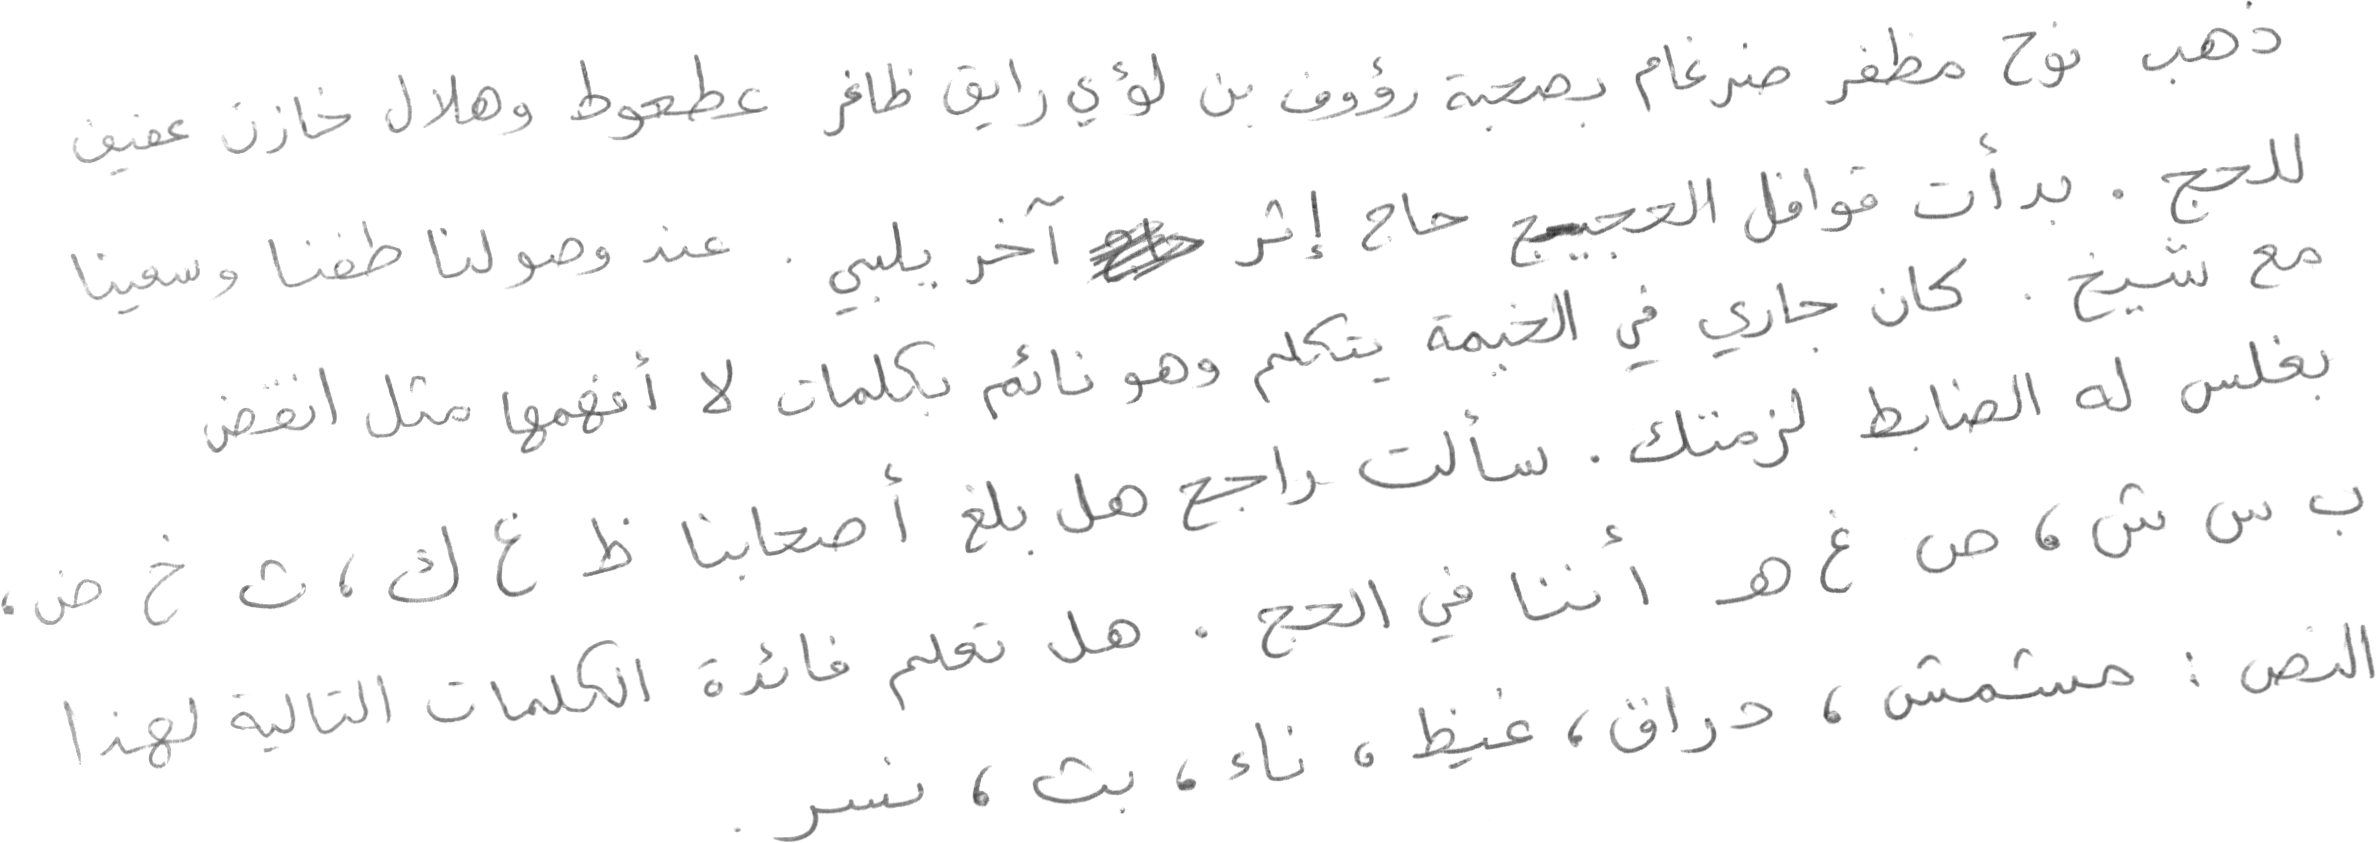 ذهب نوح مظفر ضرغام بصحبة رؤوف بن لؤي رايق ظافر عطعوط وهلال خازن عفيف
للحج . بدأت قوافل الحجيج حاج إثر آخر يلبي . عند وصولنا طفنا وسعينا
مع شيخ . كان جاري في الخيمة يتكلم وهو نائم بكلمات لا أفهمها مثل انقض
بغلس له الضابط لزمتك . سألت راجح هل بلغ أصحابنا ظ غ ك ، ث خ ض ،
ب س ش ، ص غ هـ أننا في الحج . هل تعلم فائدة الكلمات التالية لهذا
النص : مشمش ، دراق ، غيظ ، ناء ، بث ، نسر .